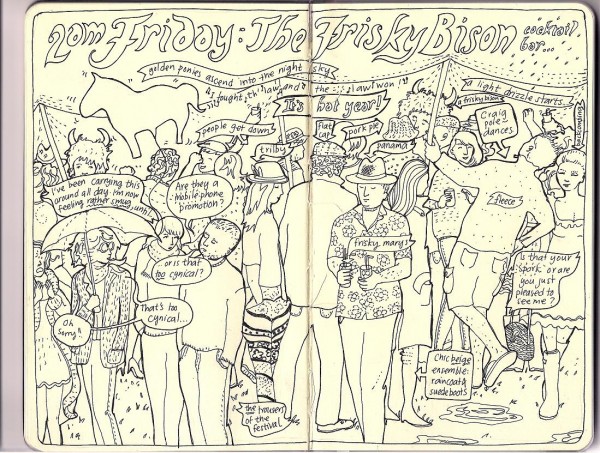 10pm Friday: The Frisky Bison cocktail
bar...
golden ponies ascend into the night sky
a light drizzle starts
"I fought the law and the law won!"
a frisky bison
It's hat year!
people get down
flat
cap
pork pie
Craig
pole
dances
trilby
panama
I've been carrying this
around all day. I'm now
feeling rather smug, until
Are they a
mobile phone
promotion?
fleece
or is that
too cynical?
frisky marys
Is that your
'spork' or are
you just
pleased to
see me?
That's too
cynical...
Oh
sorry!
Chic beige
ensemble:
raincoat &
suede boots
the trousers
of the
festival